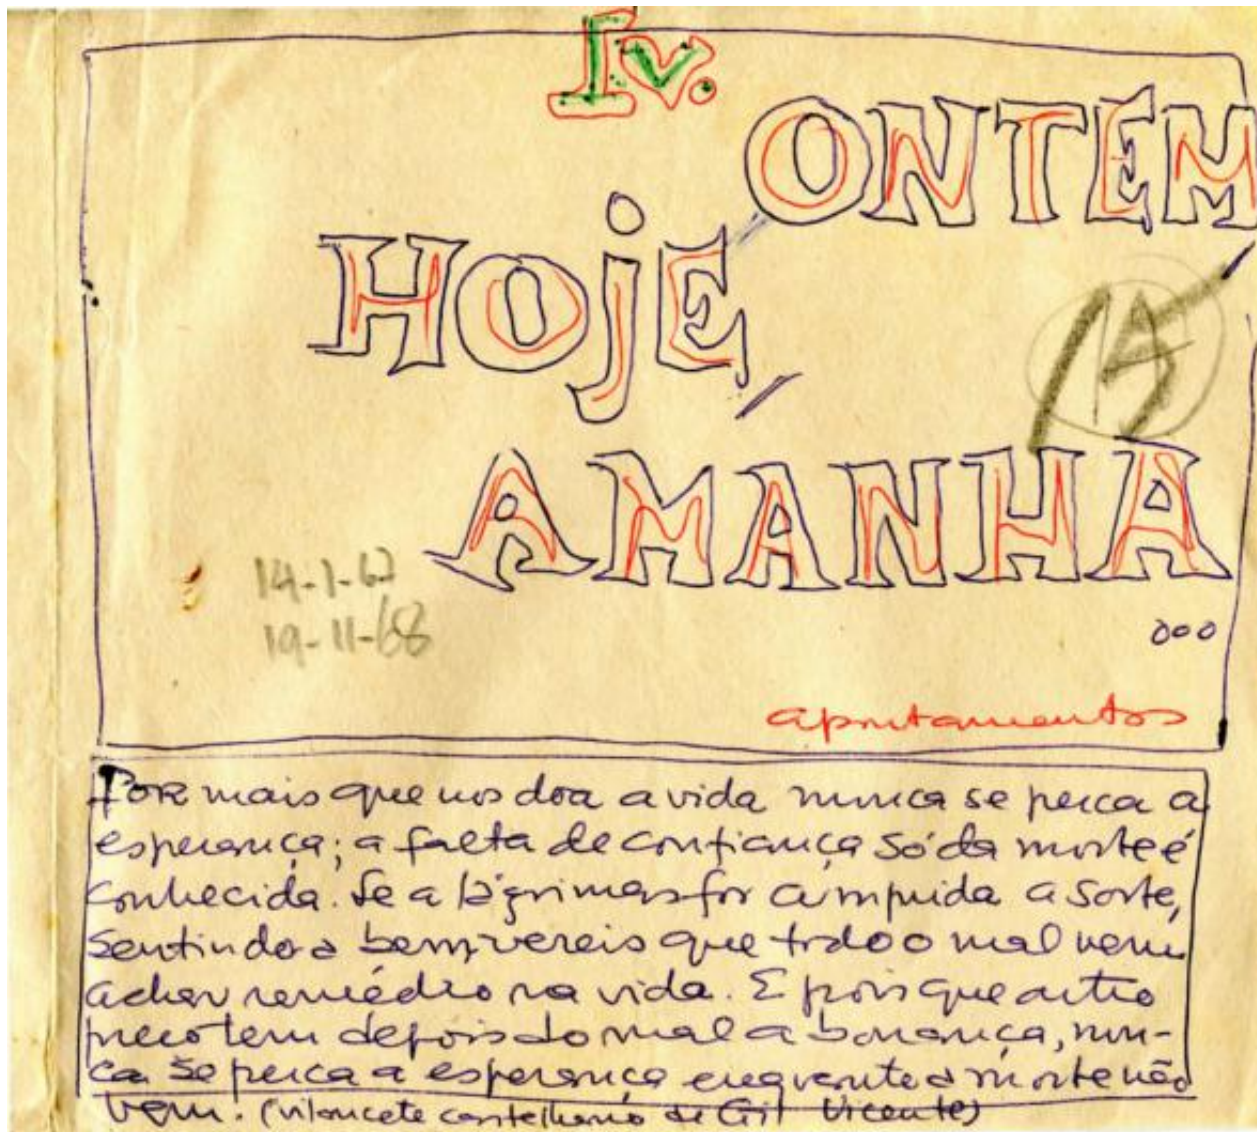 IV.
ONTEM
HOJE,
15
AMANHA
14-1-62
19-11-68
...
apontamentos
Por mais que nos doa a vida nunca se perca a
esperança; a falta de confiança só da morte é
conhecida. Se a lágrimas for cumprida a sorte,
sentindo a bem, vereis que todo o mal vem
achar remédio na vida. E pois que outro
preço tem depois do mal a bonança, nun-
ca se perca a esperança enquanto a morte não
vem. (vilancete castelhano de Gil Vicente)